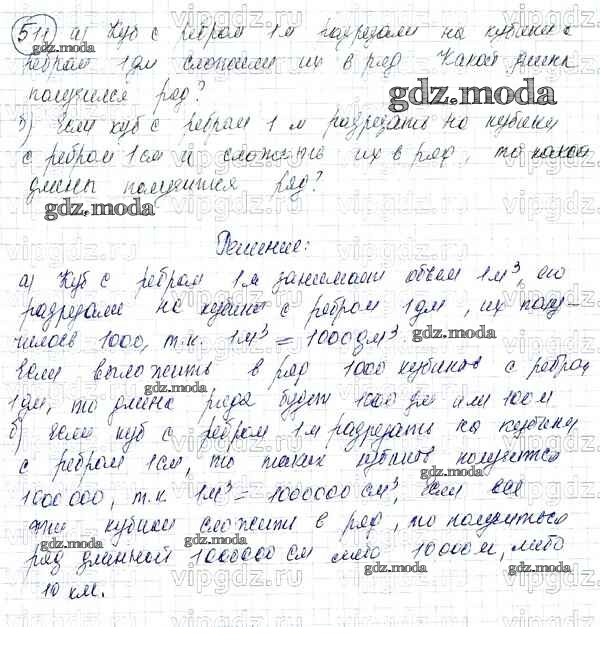 511 а) Куб с ребром 1 м разрезали на кубики с
ребром 1 дм сложили их в ряд Какой длины
получился ряд?
gdz.moda
б) Если куб с ребром 1 м разрезать на кубики
с ребром 1 см и сложить их в ряд, то какой
длины получится ряд?
gdz.moda
Решение:
а) Куб с ребром 1 м занимает объем 1 м³, его
разрезали на кубики с ребром 1 дм, их полу-
чилось 1000, т.к. 1 м³ = 1000 дм³.
gdz.moda
Если выложить в ряд 1000 кубиков с ребром
gdz.moda
1 дм, то длина ряда будет 1000 дм или 100 м
gdz.moda
б) Если куб с ребром 1 м разрезать на кубики
с ребром 1 см, то таких кубиков получится
gdz.moda
1000 000, т.к 1 м³ = 1000000 см³, Если все
эти кубики сложить в ряд, то получиться
gdz.moda
ряд длинной 1000000 см либо 10000 м, либо
gdz.moda
gdz.moda
10 км.
gdz.moda
vipgdz.ru